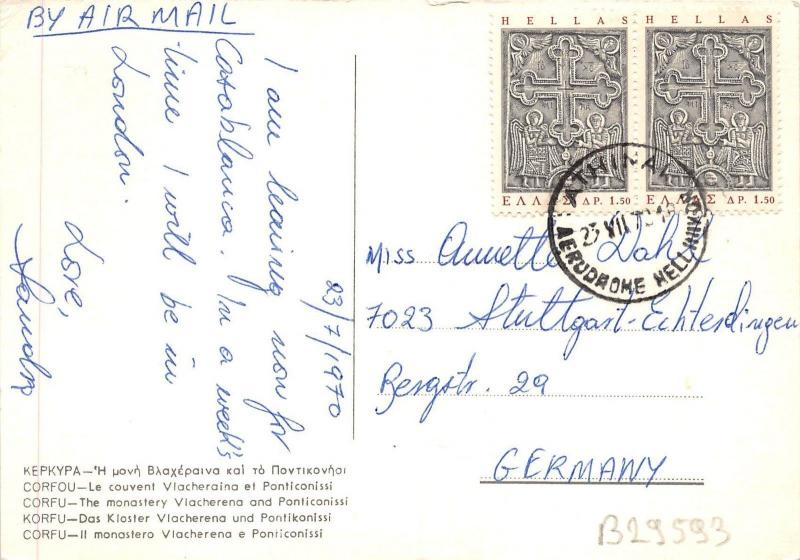 BY AIR MAIL
23/7/1970
I am leaving now for
Casablanca. In a week's
time I will be in
London.
Love,
HELLAS
ΕΛΛΑΣ ΔΡ. 1.50
HELLAS
ΕΛΛΑΣ ΔΡ. 1.50
ATHINAI
23 VII 70
AERODROME HELLINIKON
Miss Annette
7023 Stuttgart-Echterdingen
Bergstr. 29
GERMANY
ΚΕΡΚΥΡΑ—Ἡ μονή Βλαχέραινα καί τό Ποντικονήσι
CORFOU—Le couvent Vlacheraina et Ponticonissi
CORFU—The monastery Vlacherena and Ponticonissi
KORFU—Das Kloster Vlacherena und Pontikonissi
CORFU—Il monastero Vlacherena e Ponticonissi
B29593